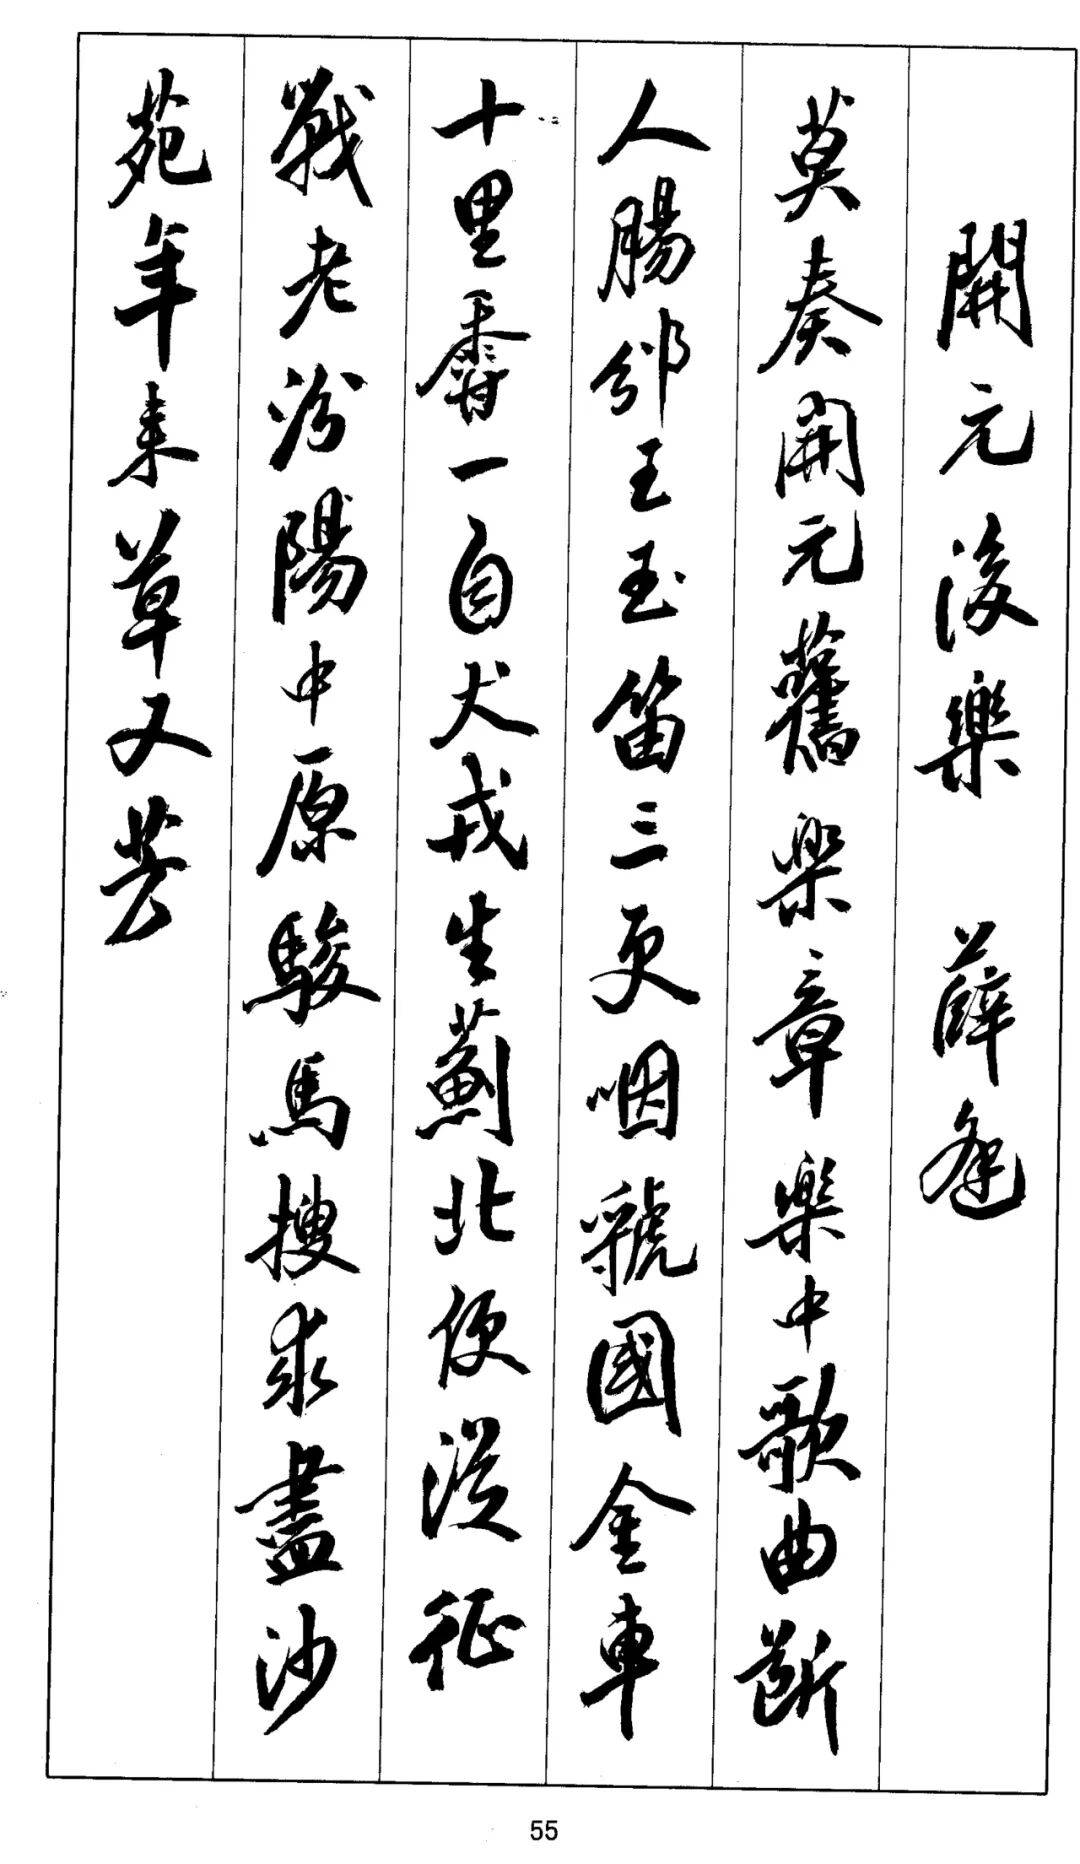 開元後樂 薛逢
莫奏開元舊樂章樂中歌曲斷
人腸邠王玉笛三更咽虢國金車
十里香一自犬戎生薊北便從征
戰老汾陽中原駿馬搜求盡沙
苑年来草又芳
55